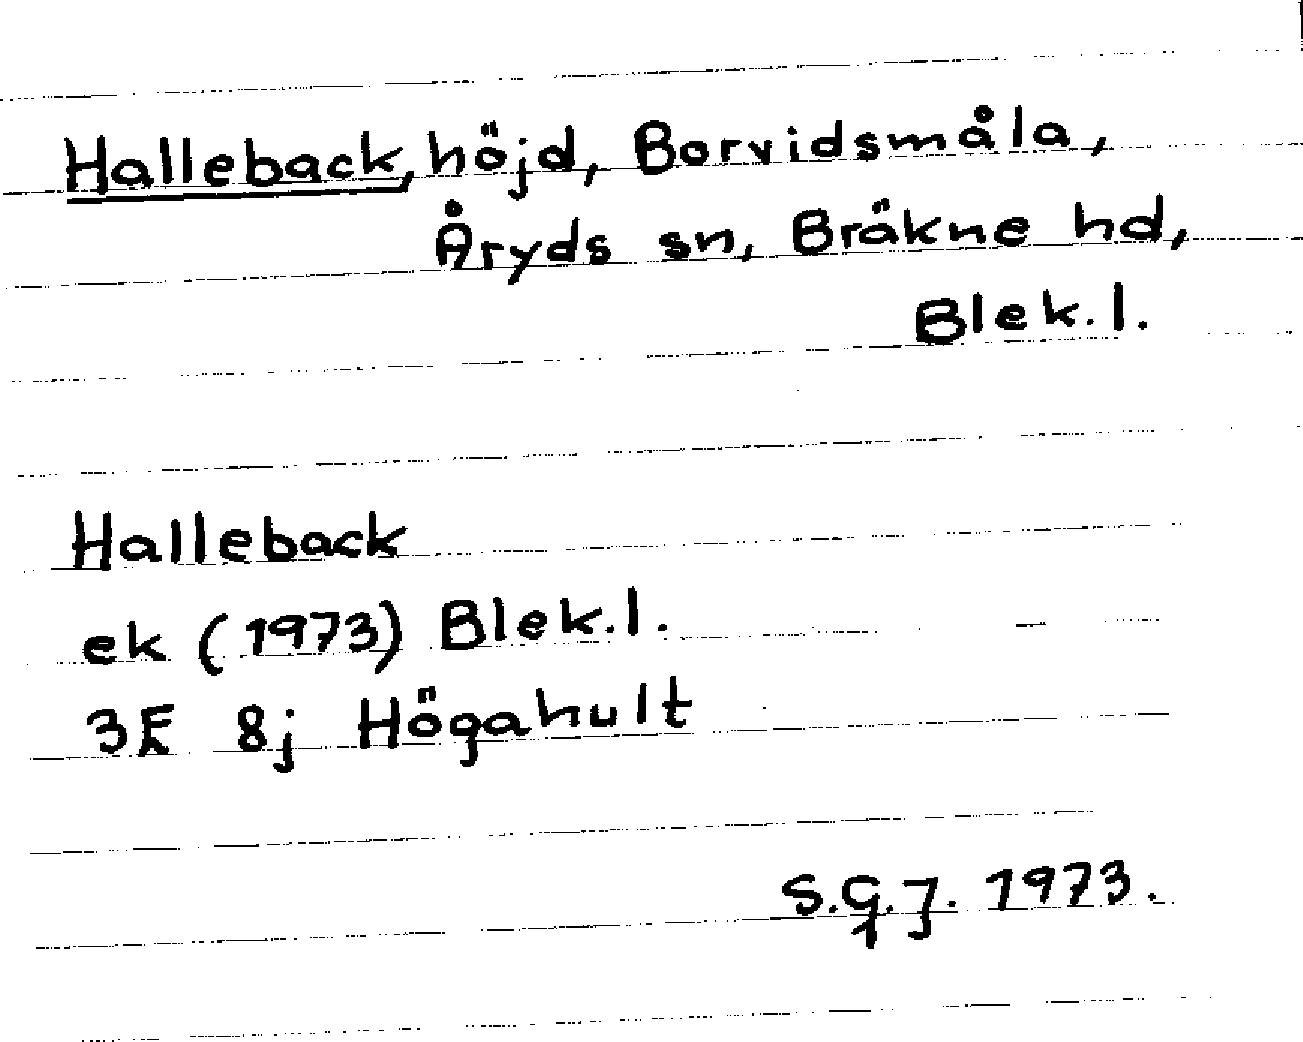 Halleback, höjd, Borvidsmåla,
Åryds sn, Bräkne hd,
Blek.l.
Halleback
ek (1973) Blek.l.
3F 8j Högahult
S.G.J. 1973.